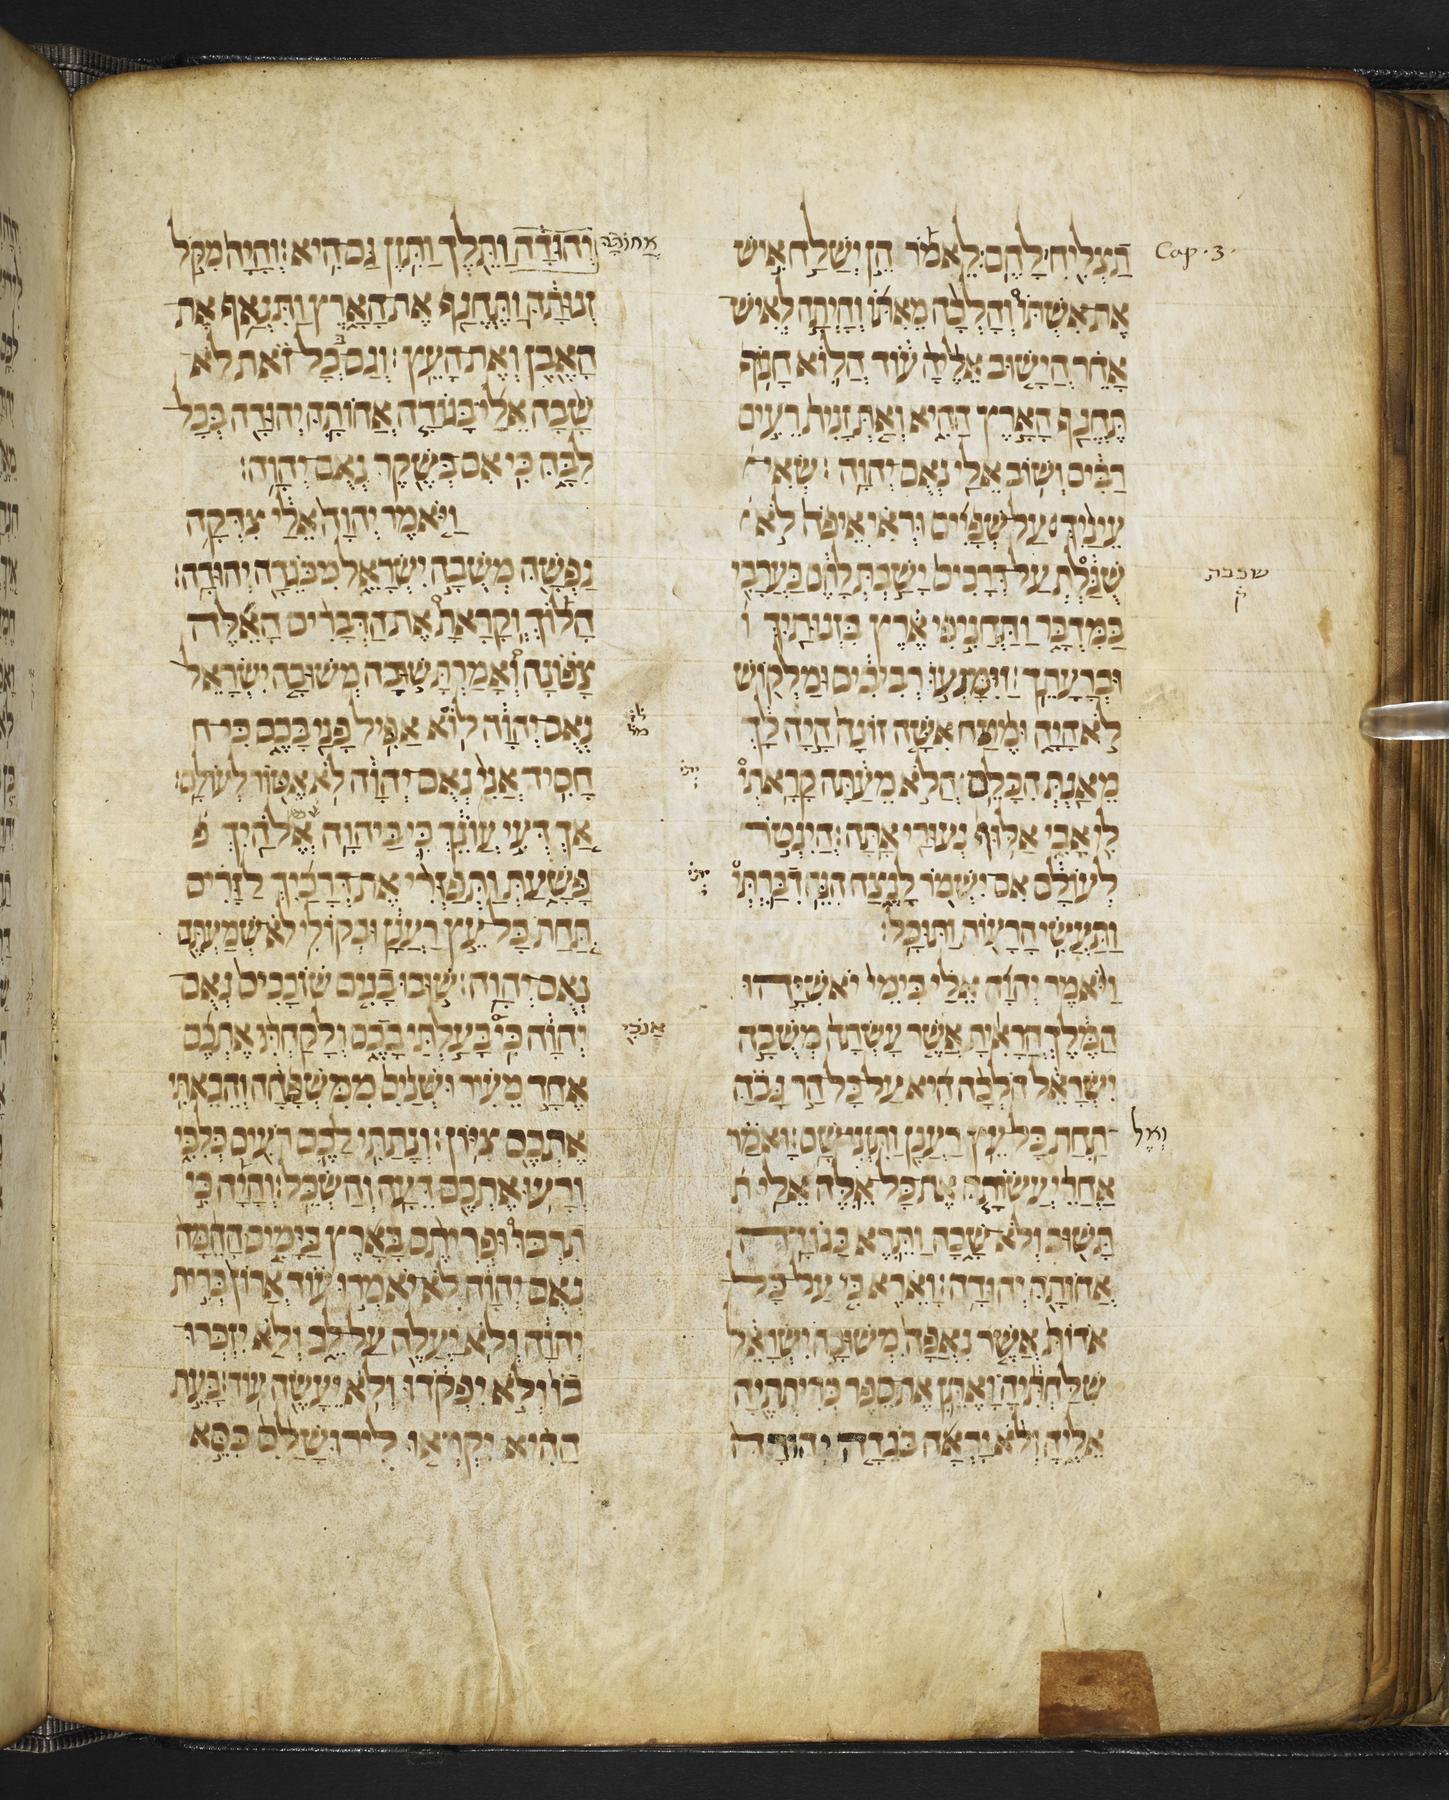 תצליחי להם: לאמר הן ישלח איש
Cap. 3.
את אשתו והלכה מאתו והיתה לאיש
אחר הישוב אליה עוד הלוא חנוף
תחנף הארץ ההיא ואת זנית רעים
רבים ושוב אלי נאם יהוה: שאי
עיניך על שפים וראי איפה לא
שגלת על דרכים ישבת להם כערבי
שכבת
ק
במדבר ותחניפי ארץ בזנותיך ו
וברעתך: וימנעו רביבים ומלקוש
לא היה ומצח אשה זונה היה לך
מאנת הכלם: הלא מעתה קראתי
לי אבי אלוף נערי אתה: הינטר
לעולם אם ישמר לנצח הנה דברתי
ותעשי הרעות ותוכל:
ויאמר יהוה אלי בימי יאשיהו
המלך הראית אשר עשתה משבה
ישראל הלכה היא על כל הר גבה
תחת כל עץ רענן ותזני שם: ואמר
ואל
אחרי עשותה את כל אלה אלי ת
תשוב ולא שבה ותרא בגודה
אחותה יהודה: וארא כי על כל
אדות אשר נאפה משובה ישראל
שלחתיה ואתן את ספר כריתתיה
אליה ולא יראה בגדה יהודה
אחותה
יהודה ותלך ותזן גם היא: והיה מקל
זנותה ותחנף את הארץ ותנאף את
האבן ואת העץ: וגם בכל זאת לא
שבה אלי בגודה אחותה יהודה בכל
לבה כי אם בשקר נאם יהוה:
ויאמר יהוה אלי צדקה
נפשה משבה ישראל מבגדה יהודה:
הלוך וקראת את הדברים האלה
צפונה ואמרת שובה משובה ישראל
נאם יהוה לוא אפיל פני בכם כי ח
חסיד אני נאם יהוה לא אטור לעולם:
אך דעי עונך כי ביהוה אלהיך פ
פשעת ותפזרי את דרכיך לזרים
תחת כל עץ רענן ובקולי לא שמעתם
נאם יהוה: שובו בנים שובבים נאם
יהוה כי בעלתי בכם ולקחתי אתכם
אנכי
אחד מעיר ושנים ממשפחה והבאתי
אתכם ציון: ונתתי לכם רעים כלבי
ורעו אתכם דעה והשכל: והיה כי
תרבו ופריתם בארץ בימים ההמה
נאם יהוה לא יאמרו עוד ארון ברית
יהוה ולא יעלה על לב ולא יזכרו
בו ולא יפקדו ולא יעשה עוד: בעת
ההיא יקראו לירושלם כסא